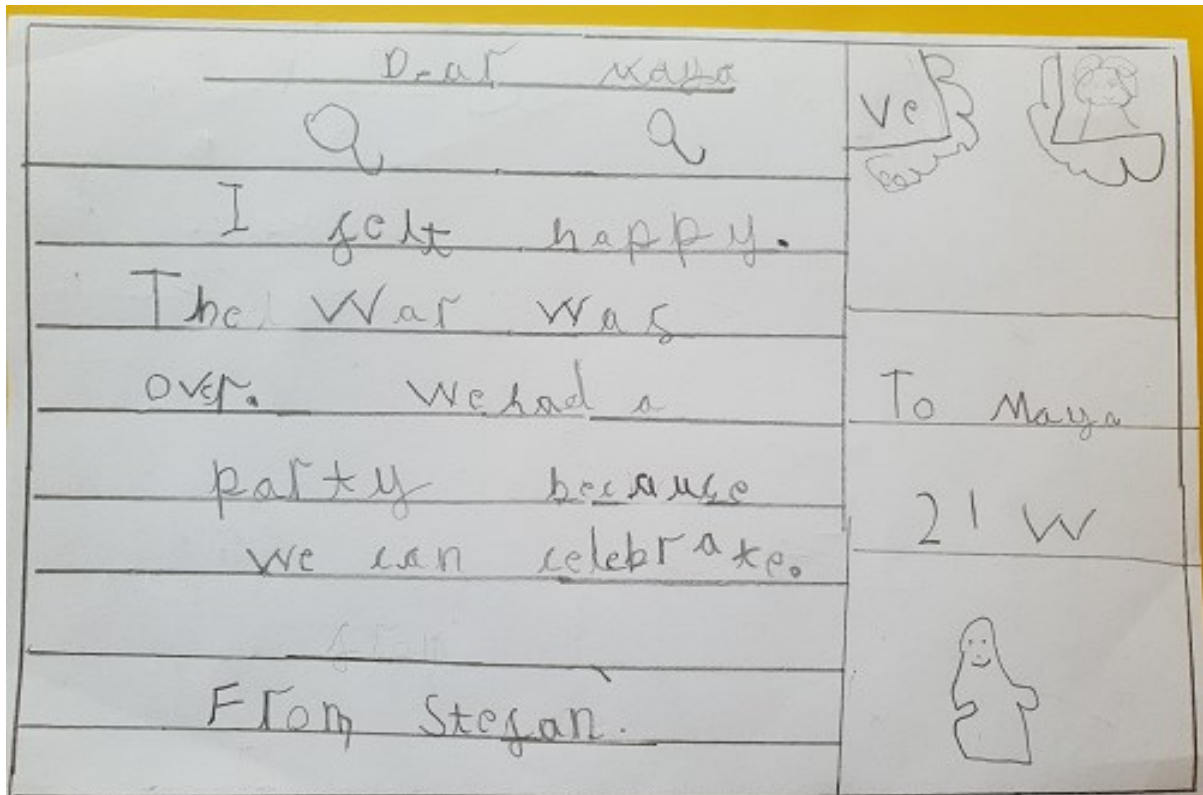 Dear Maya
I felt happy.
The War was
over. We had a
party because
we can celebrate.
from
From Stefan.
Ve
To Maya
21 W